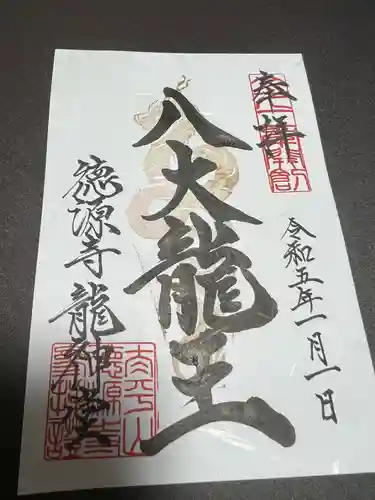 奉拝
令和五年一月一日
八大龍王
徳源寺龍神堂